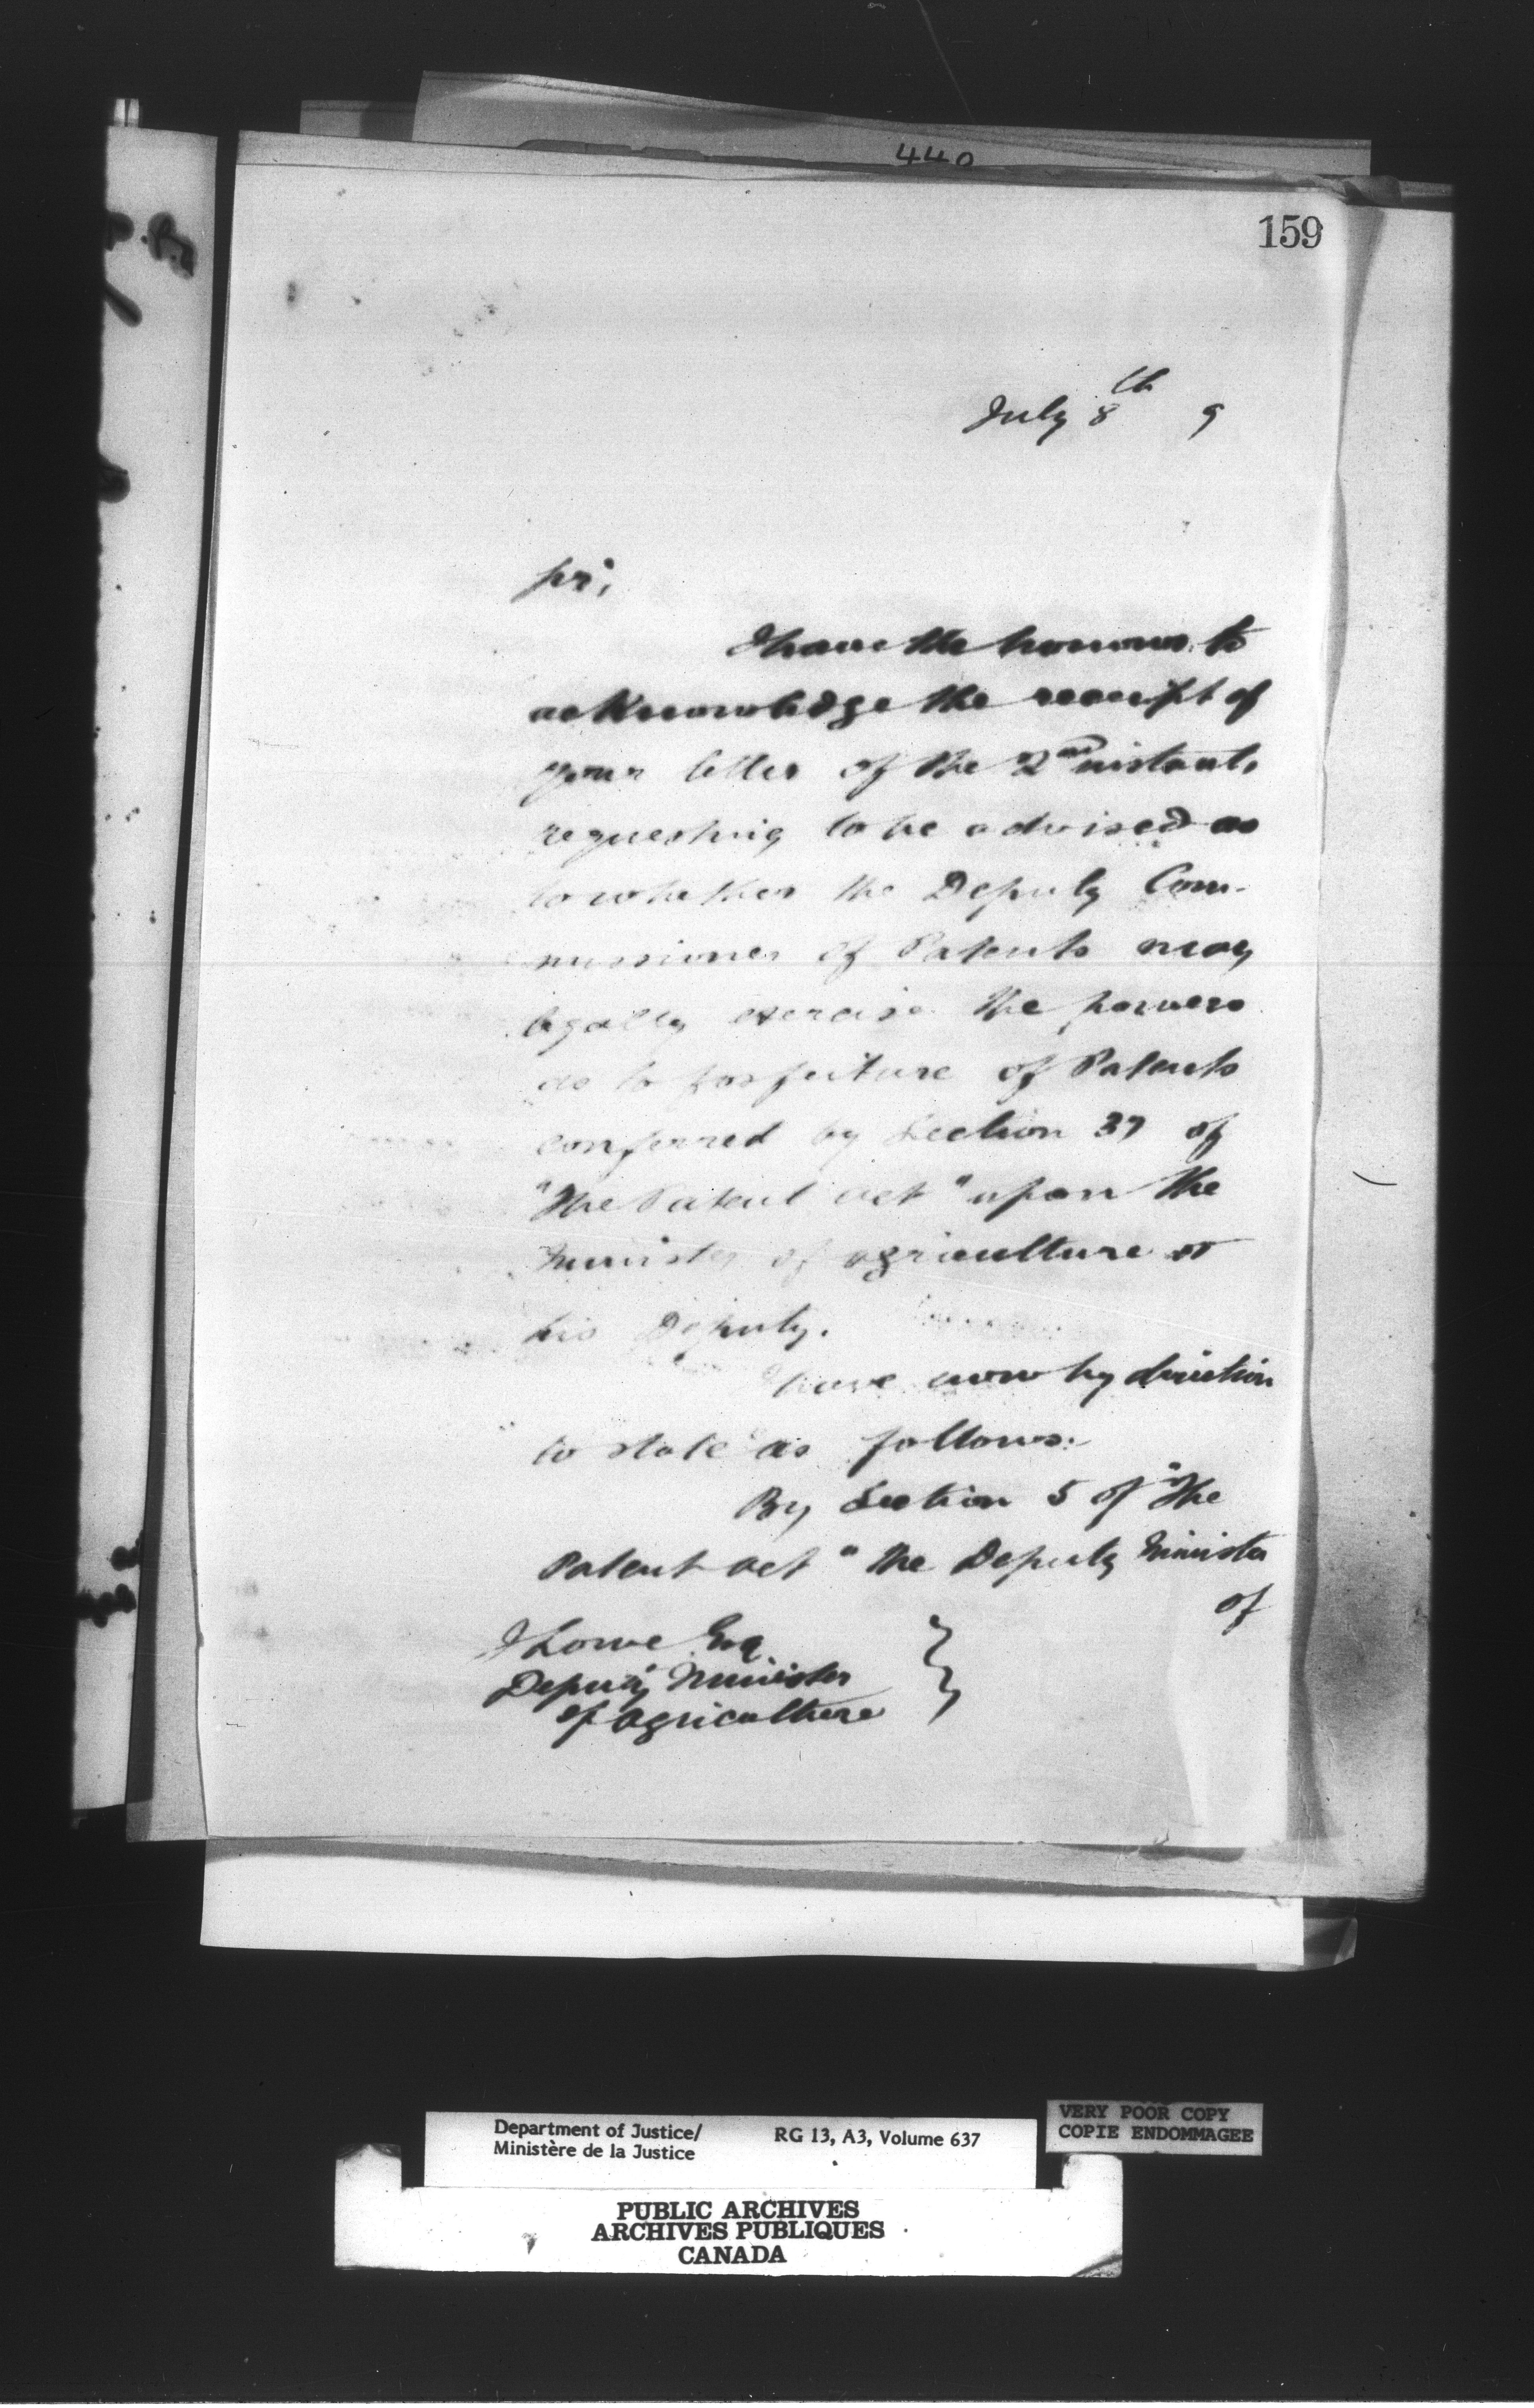 440
159
July 8th 9
Sir,
I have the honour to
acknowledge the receipt of
your letter of the 2nd instant,
requesting to be advised as
to whether the Deputy Com-
missioner of Patents may
legally exercise the powers
as to forfeiture of Patents
conferred by Section 37 of
"The Patent Act" upon the
Minister of Agriculture or
his Deputy.
I have now by direction
to state as follows:
By Section 5 of "The
Patent Act" the Deputy Minister
of
J Lowe Esq
Deputy Minister
of Agriculture
Department of Justice/
Ministère de la Justice
RG 13, A3, Volume 637
VERY POOR COPY
COPIE ENDOMMAGEE
PUBLIC ARCHIVES
ARCHIVES PUBLIQUES
CANADA